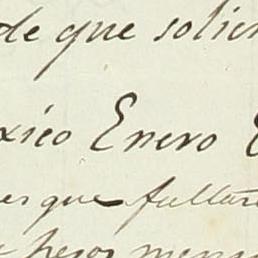 de que solici
xico Enero
es que faltar
pesos mens